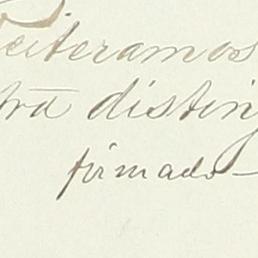 Reiteramos
tra disting
firmado —